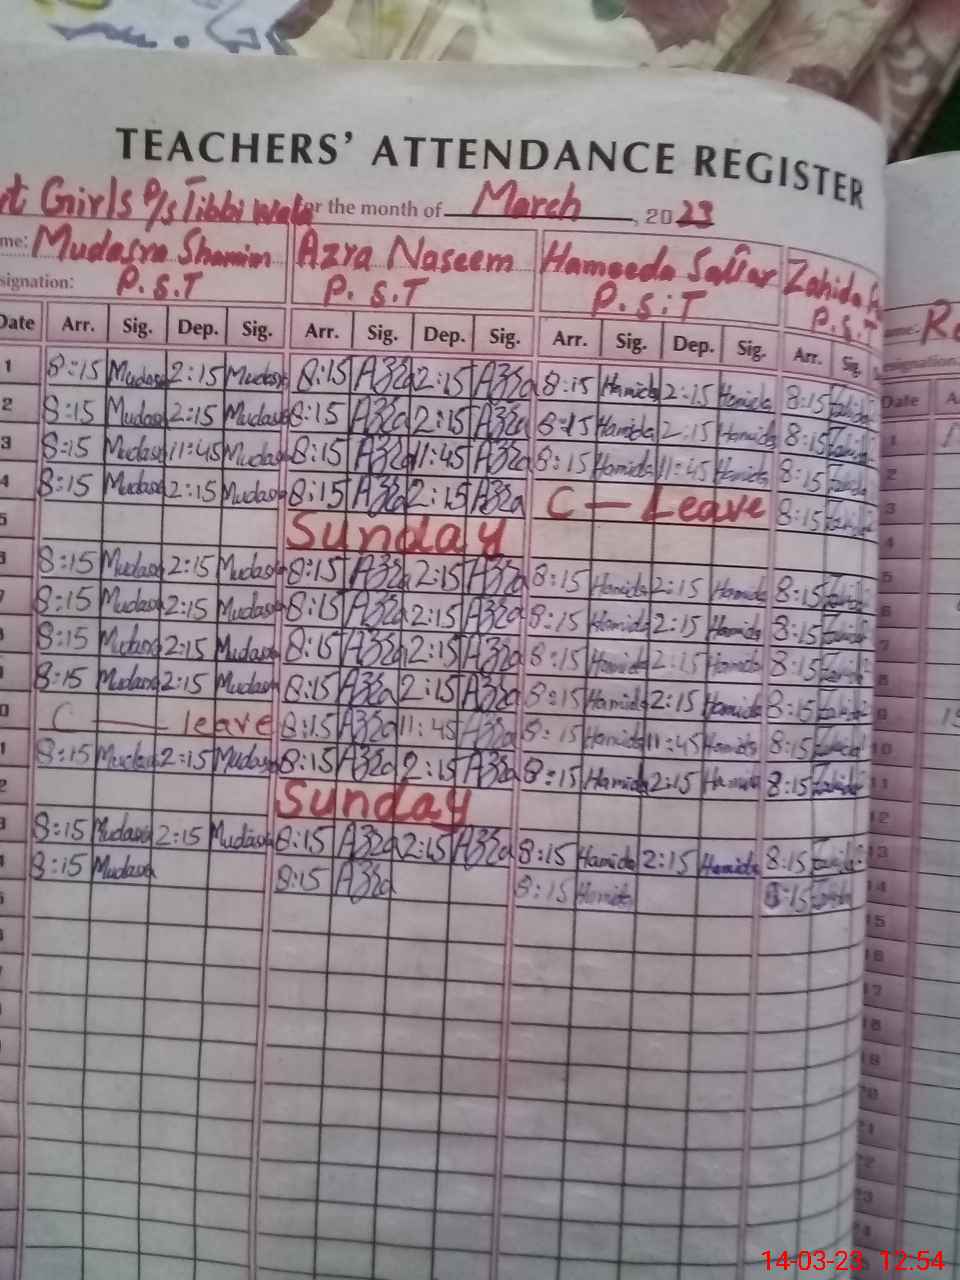 TEACHERS' ATTENDANCE REGISTER
Girls P/s Tibbi wala for the month of March, 2023
me: Mudasra Shamim Azra Naseem Hameeda Sattar Zahida
signation: P.S.T P.S.T P.S.T P.S.T
Date Arr. Sig. Dep. Sig. Arr. Sig. Dep. Sig. Arr. Sig. Dep. Sig. Arr. Sig.
1 8:15 Mudasra 2:15 Mudasra 8:15 Azra 2:15 Azra 8:15 Hamida 2:15 Hamida 8:15 Zahida
2 8:15 Mudasra 2:15 Mudasra 8:15 Azra 2:15 Azra 8:15 Hamida 2:15 Hamida 8:15 Zahida
3 8:15 Mudasra 11:45 Mudasra 8:15 Azra 11:45 Azra 8:15 Hamida 11:45 Hamida 8:15 Zahida
4 8:15 Mudasra 2:15 Mudasra 8:15 Azra 2:15 Azra C — Leave 8:15 Zahida
5 Sunday
8:15 Mudasra 2:15 Mudasra 8:15 Azra 2:15 Azra 8:15 Hamida 2:15 Hamida 8:15 Zahida
8:15 Mudasra 2:15 Mudasra 8:15 Azra 2:15 Azra 8:15 Hamida 2:15 Hamida 8:15 Zahida
8:15 Mudasra 2:15 Mudasra 8:15 Azra 2:15 Azra 8:15 Hamida 2:15 Hamida 8:15 Zahida
8:15 Mudasra 2:15 Mudasra 8:15 Azra 2:15 Azra 8:15 Hamida 2:15 Hamida 8:15 Zahida
0 C — leave 8:15 Azra 11:45 Azra 8:15 Hamida 11:45 Hamida 8:15 Zahida
1 8:15 Mudasra 2:15 Mudasra 8:15 Azra 2:15 Azra 8:15 Hamida 2:15 Hamida 8:15 Zahida
2 Sunday
3 8:15 Mudasra 2:15 Mudasra 8:15 Azra 2:15 Azra 8:15 Hamida 2:15 Hamida 8:15 Zahida
8:15 Mudasra 8:15 Azra 8:15 Hamida 8:15 Zahida
Date
1
2
3
4
5
6
7
8
9
10
11
12
13
14
15
16
17
18
19
20
21
22
23
24
14-03-23 12:54